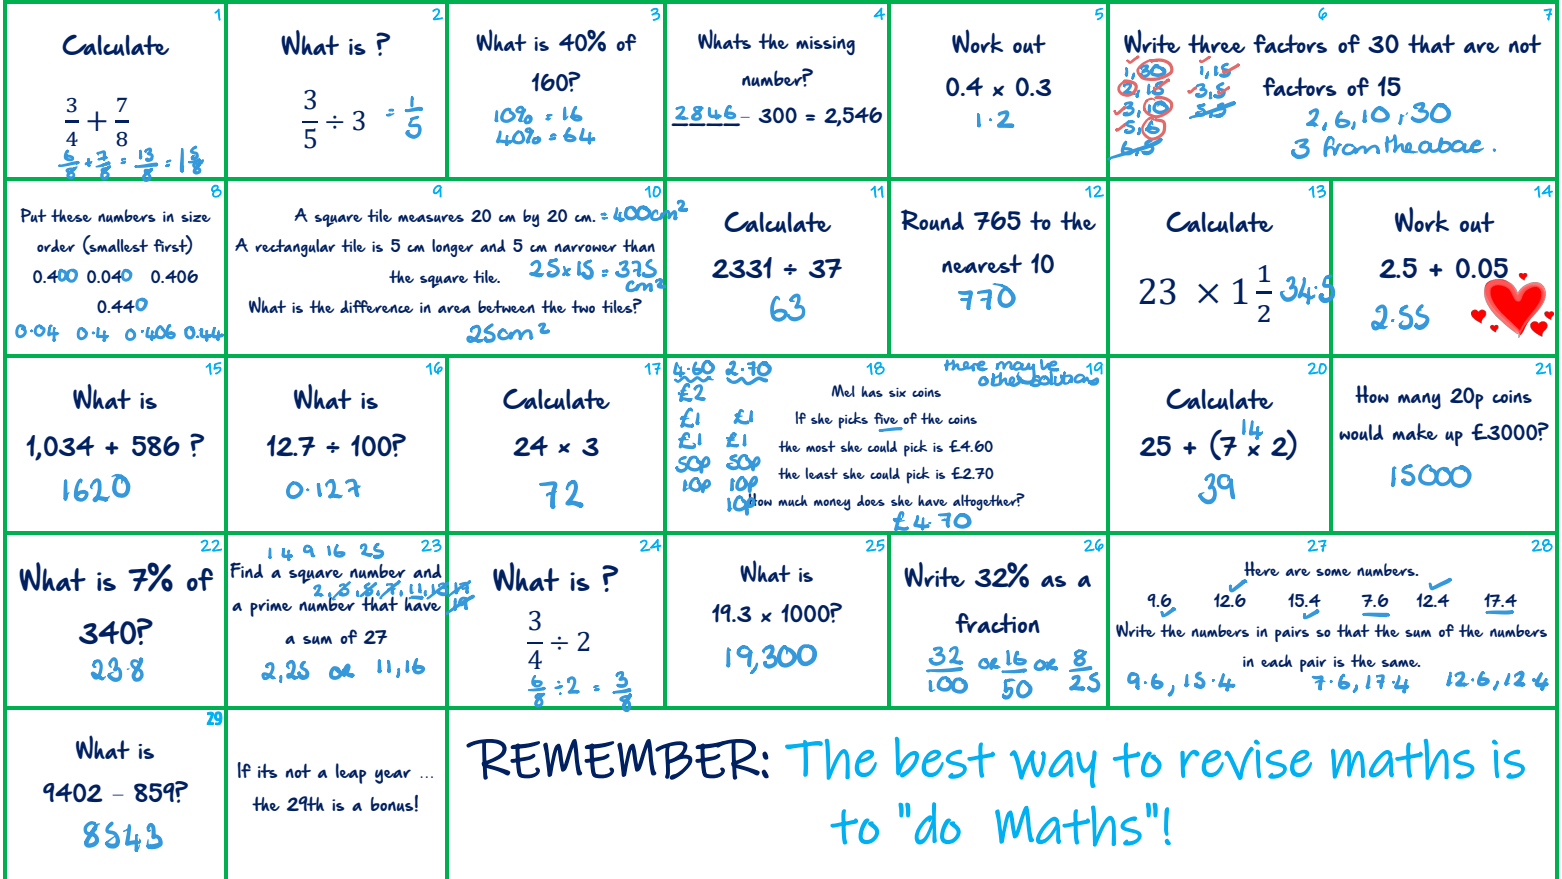 1
Calculate
3/4 + 7/8
6/8 + 7/8 = 13/8 = 1 5/8
2
What is ?
3/5 ÷ 3 = 1/5
3
What is 40% of
160?
10% = 16
40% = 64
4
Whats the missing
number?
2846 – 300 = 2,546
5
Work out
0.4 x 0.3
1.2
6 7
Write three factors of 30 that are not
factors of 15
1, 30 1, 15
2, 15 3, 5
3, 10 5, 3
5, 6
6, 5
2, 6, 10, 30
3 from the above.
8
Put these numbers in size
order (smallest first)
0.400 0.040 0.406
0.440
0.04 0.4 0.406 0.44
9 10
A square tile measures 20 cm by 20 cm. = 400cm²
A rectangular tile is 5 cm longer and 5 cm narrower than
the square tile. 25x15 = 375 cm²
What is the difference in area between the two tiles?
25cm²
11
Calculate
2331 ÷ 37
63
12
Round 765 to the
nearest 10
770
13
Calculate
23 × 1 1/2 34.5
14
Work out
2.5 + 0.05
2.55
15
What is
1,034 + 586 ?
1620
16
What is
12.7 ÷ 100?
0.127
17
Calculate
24 x 3
72
18 19
there may be
other solutions
4.60 2.70
£2
£1 £1
£1 £1
50p 50p
10p 10p
10p
Mel has six coins
If she picks five of the coins
the most she could pick is £4.60
the least she could pick is £2.70
How much money does she have altogether?
£4.70
20
Calculate
14
25 + (7 x 2)
39
21
How many 20p coins
would make up £3000?
15000
22
What is 7% of
340?
23.8
23
1 4 9 16 25
Find a square number and
2, 3, 5, 7, 11, 13 17
19
a prime number that have
a sum of 27
2,25 OR 11,16
24
What is ?
3/4 ÷ 2
6/8 ÷2 = 3/8
25
What is
19.3 x 1000?
19,300
26
Write 32% as a
fraction
32/100 OR 16/50 OR 8/25
27 28
Here are some numbers.
9.6 12.6 15.4 7.6 12.4 17.4
Write the numbers in pairs so that the sum of the numbers
in each pair is the same.
9.6, 15.4 7.6, 17.4 12.6, 12.4
29
What is
9402 – 859?
8543
If its not a leap year ...
the 29th is a bonus!
REMEMBER: The best way to revise maths is
to "do Maths"!